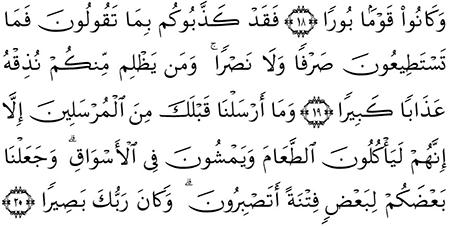 وَكَانُوا۟ قَوْمًۢا بُورًا ١٨ فَقَدْ كَذَّبُوكُم بِمَا تَقُولُونَ فَمَا
تَسْتَطِيعُونَ صَرْفًا وَلَا نَصْرًا ۚ وَمَن يَظْلِم مِّنكُمْ نُذِقْهُ
عَذَابًا كَبِيرًا ١٩ وَمَا أَرْسَلْنَا قَبْلَكَ مِنَ الْمُرْسَلِينَ إِلَّا
إِنَّهُمْ لَيَأْكُلُونَ الطَّعَامَ وَيَمْشُونَ فِى الْأَسْوَاقِ ۗ وَجَعَلْنَا
بَعْضَكُمْ لِبَعْضٍ فِتْنَةً أَتَصْبِرُونَ ۗ وَكَانَ رَبُّكَ بَصِيرًا ٢٠